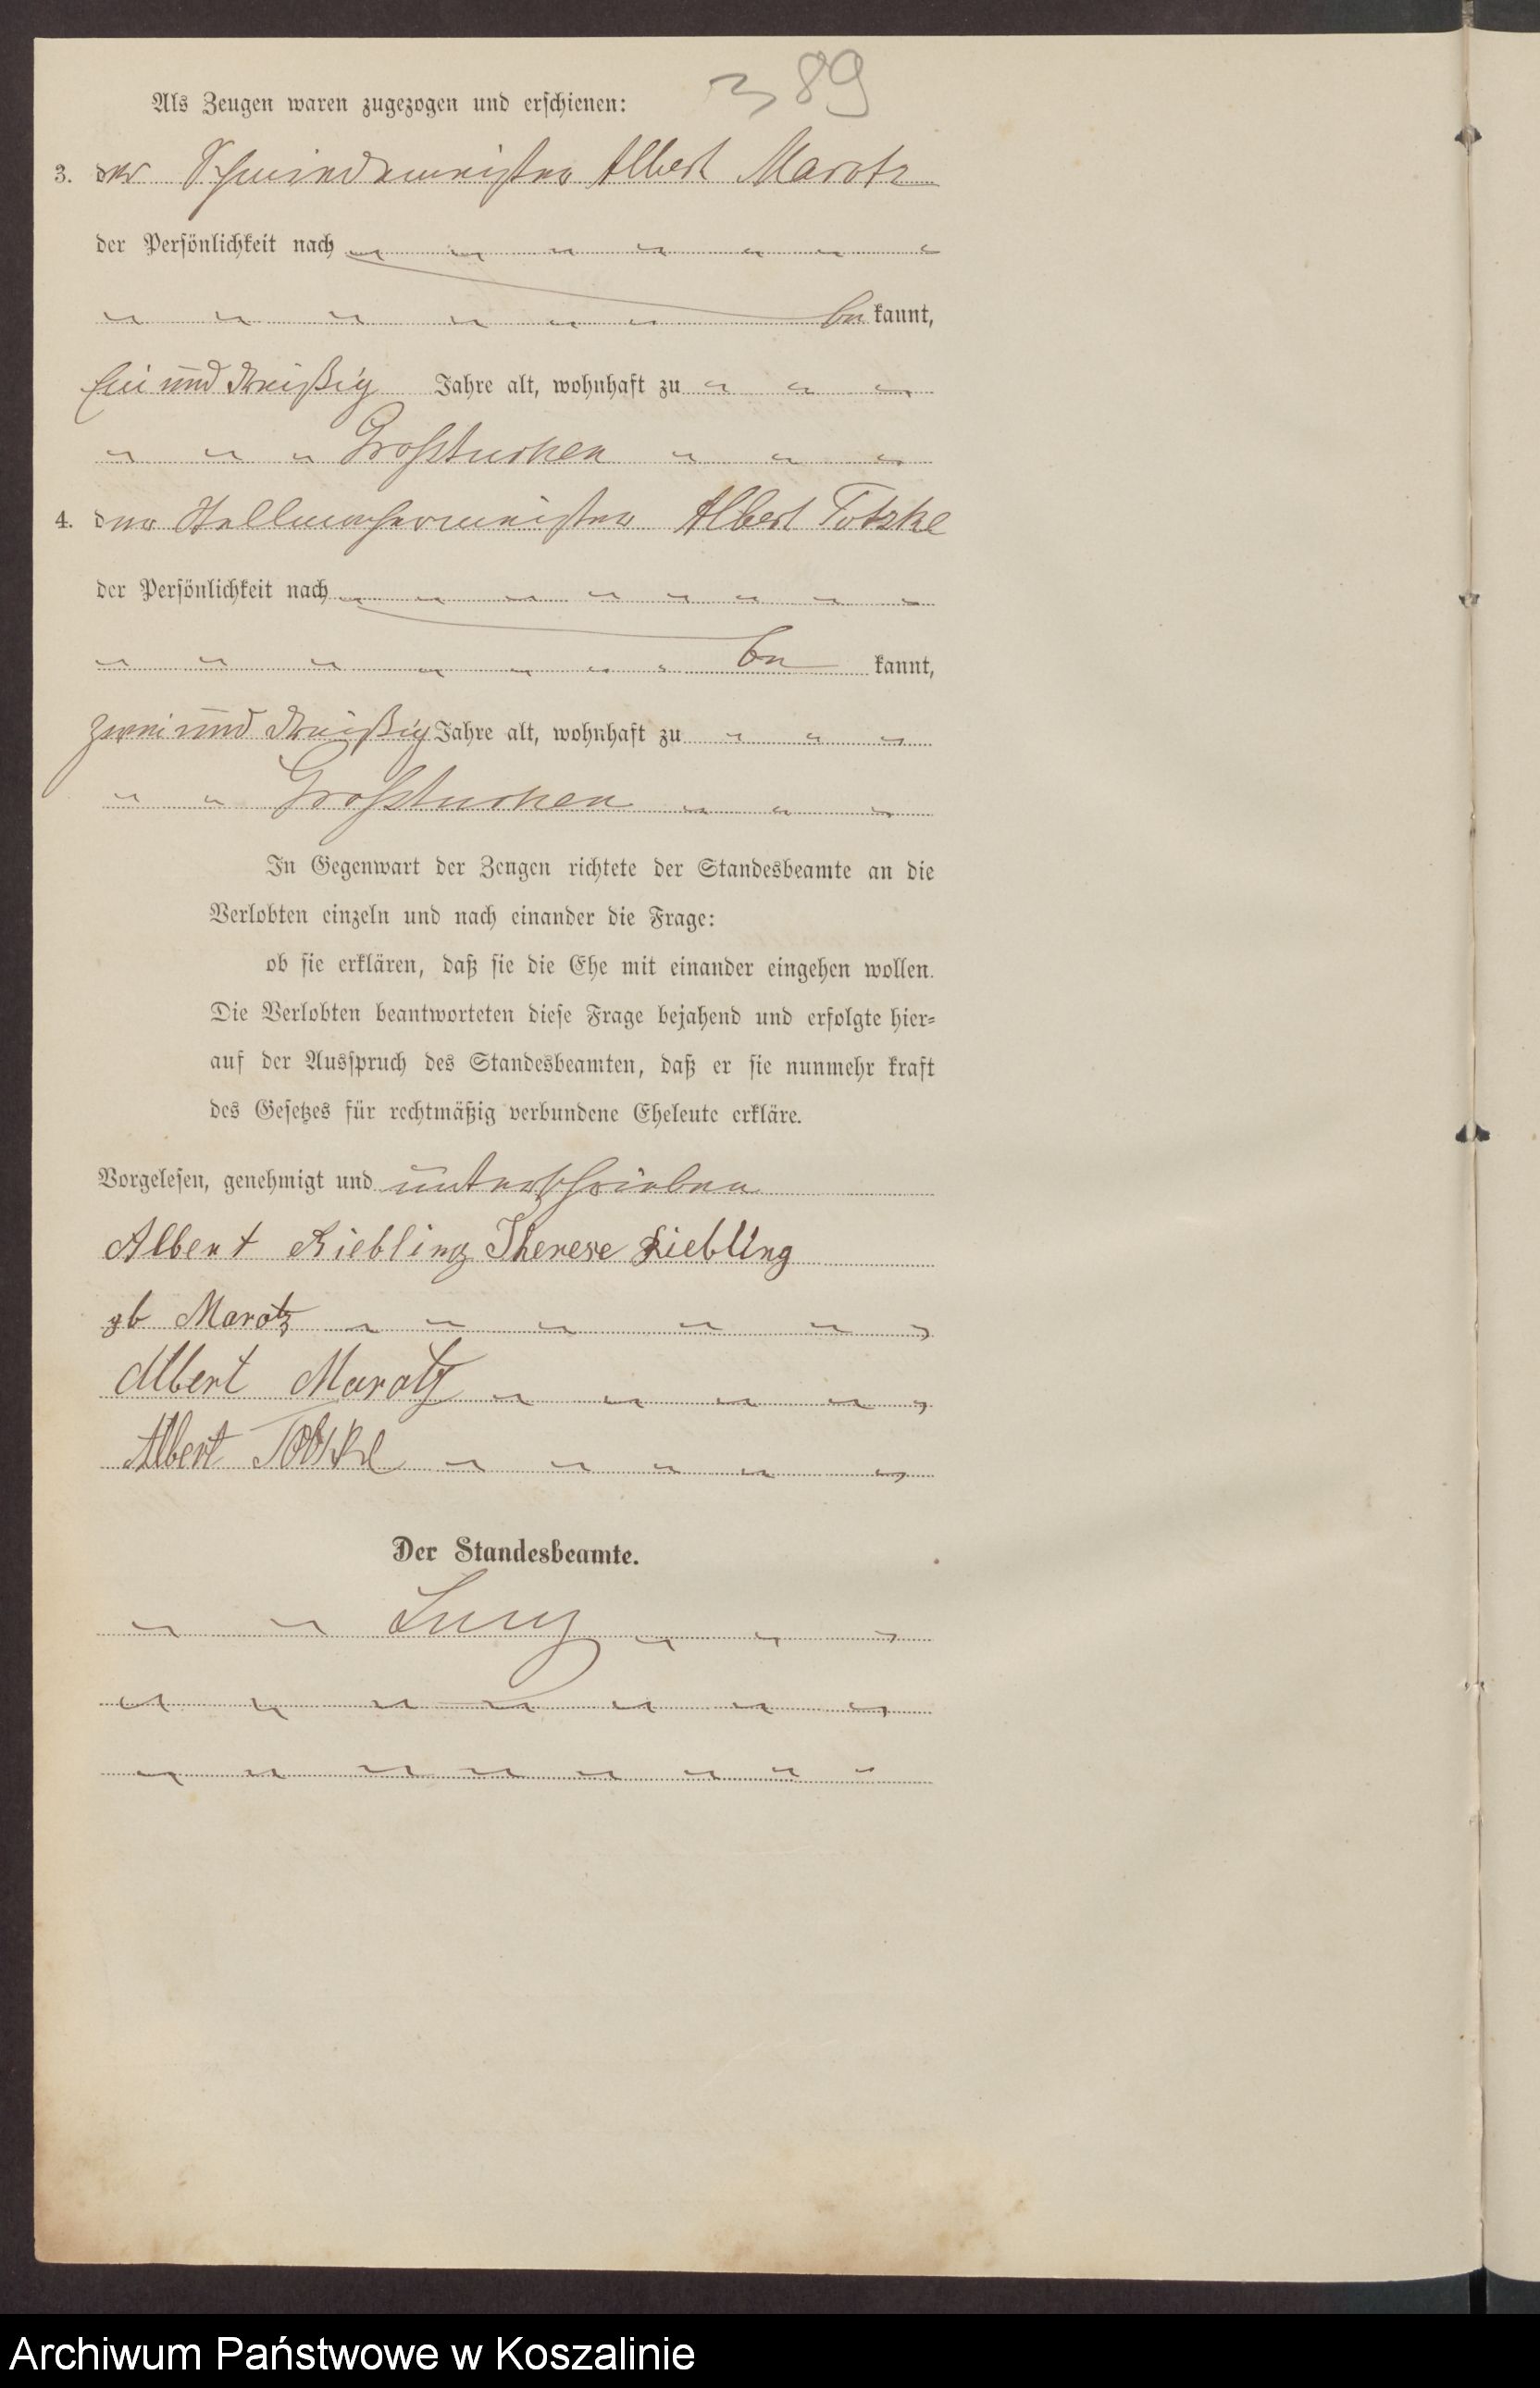 89
Als Zeugen waren zugezogen und erschienen:
3. der Schmiedemeister Albert Marotz
der Persönlichkeit nach
be kannt,
Ein und dreißig Jahre alt, wohnhaft zu
Großtuchen
4. der Stellmachermeister Albert Totzke
der Persönlichkeit nach
be kannt,
zwei und dreißig Jahre alt, wohnhaft zu
Großtuchen
In Gegenwart der Zeugen richtete der Standesbeamte an die
Verlobten einzeln und nach einander die Frage:
ob sie erklären, daß sie die Ehe mit einander eingehen wollen.
Die Verlobten beantworteten diese Frage bejahend und erfolgte hier-
auf der Ausspruch des Standesbeamten, daß er sie nunmehr kraft
des Gesetzes für rechtmäßig verbundene Eheleute erkläre.
Vorgelesen, genehmigt und unterschrieben
Albert Liebling Therese Liebling
gb Marotz
Albert Marotz
Albert Totzke
Der Standesbeamte.
Archiwum Państwowe w Koszalinie